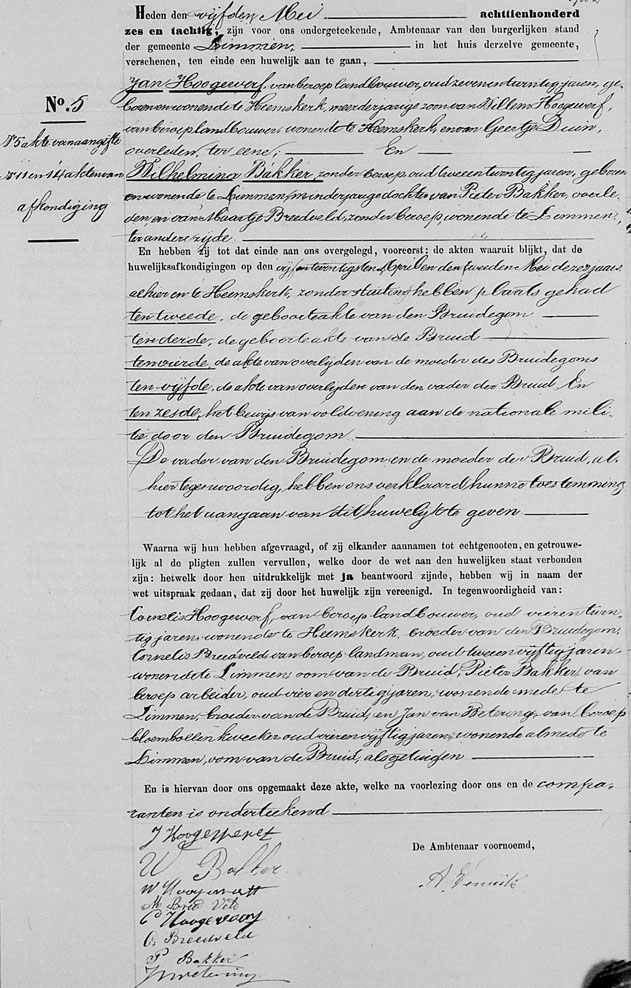 Heden den vijfden Mei achttienhonderd
zes en tachtig, zijn voor ons ondergeteekende, Ambtenaar van den burgerlijken stand
der gemeente Limmen, in het huis derzelve gemeente,
verschenen, ten einde een huwelijk aan te gaan,
Jan Hoogewerf, van beroep landbouwer, oud zeven en twintig jaren, ge-
boren en wonende te Heemskerk, meerderjarige zoon van Willem Hoogewerf,
van beroep landbouwer, wonende te Heemskerk, en van Geertje Duin,
overleden, ter eene; En
Wilhelmina Bakker, zonder beroep, oud twee en twintig jaren, geboren
en wonende te Limmen, minderjarige dochter van Pieter Bakker, overle-
den, en van Maartje Breedveld, zonder beroep, wonende te Limmen,
ter andere zijde
No. 5
No 5 akte van aangifte
No 11 en 14 akten van
afkondiging
En hebben zij tot dat einde aan ons overgelegd, vooreerst: de akten waaruit blijkt, dat de
huwelijksafkondigingen op den vijf en twintigsten April en den tweeden Mei dezes jaars
alhier en te Heemskerk, zonder stuiting hebben plaats gehad
ten tweede, de geboorteakte van den Bruidegom
ten derde, de geboorteakte van de Bruid
ten vierde, de akte van overlijden van de moeder des Bruidegoms
ten vijfde, de akte van overlijden van den vader der Bruid, En
ten zesde, het bewijs van voldoening aan de nationale mili-
tie door den Bruidegom
De vader van den Bruidegom en de moeder der Bruid, al-
hier tegenwoordig, hebben ons verklaard, hunne toestemming
tot het aangaan van dit huwelijk te geven
Waarna wij hun hebben afgevraagd, of zij elkander aannamen tot echtgenooten, en getrouwe-
lijk al de pligten zullen vervullen, welke door de wet aan den huwelijken staat verbonden
zijn: hetwelk door hen uitdrukkelijk met ja beantwoord zijnde, hebben wij in naam der
wet uitspraak gedaan, dat zij door het huwelijk zijn vereenigd. In tegenwoordigheid van:
Cornelis Hoogewerf, van beroep landbouwer, oud vier en twin-
tig jaren, wonende te Heemskerk, broeder van den Bruidegom,
Cornelis Breedveld van beroep landman, oud twee en vijftig jaren
wonende te Limmen, oom van de Bruid, Pieter Bakker, van
beroep arbeider, oud vier en dertig jaren, wonende mede te
Limmen, broeder van de Bruid, en Jan van Wetering, van beroep
bloembollenkweeker oud vier en vijftig jaren, wonende almede te
Limmen, oom van de Bruid, als getuigen
En is hiervan door ons opgemaakt deze akte, welke na voorlezing door ons en de compa-
ranten is onderteekend
De Ambtenaar voornoemd,
J Hoogewerf
W Bakker
W
M
C
C Breedveld
P Bakker
J v wetering
A